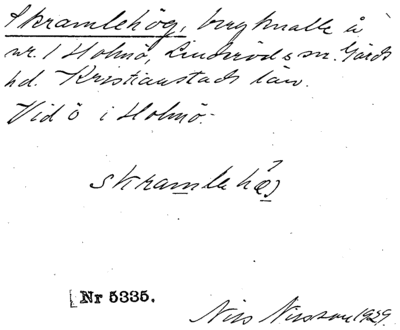 Skramlehög, bergknalle å
nr. 1 Holmö, Linderöds sn. Gärds
hd. Kristianstads län.
Vid ö i Holmö.
skramlehæ
[Nr 5335.
Nils Nilsson 1929.